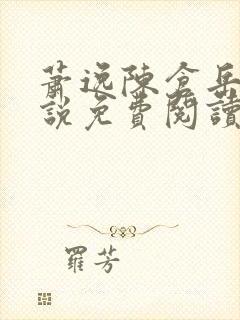 蕭逸陳倉岳
說免費閱讀
羅芳